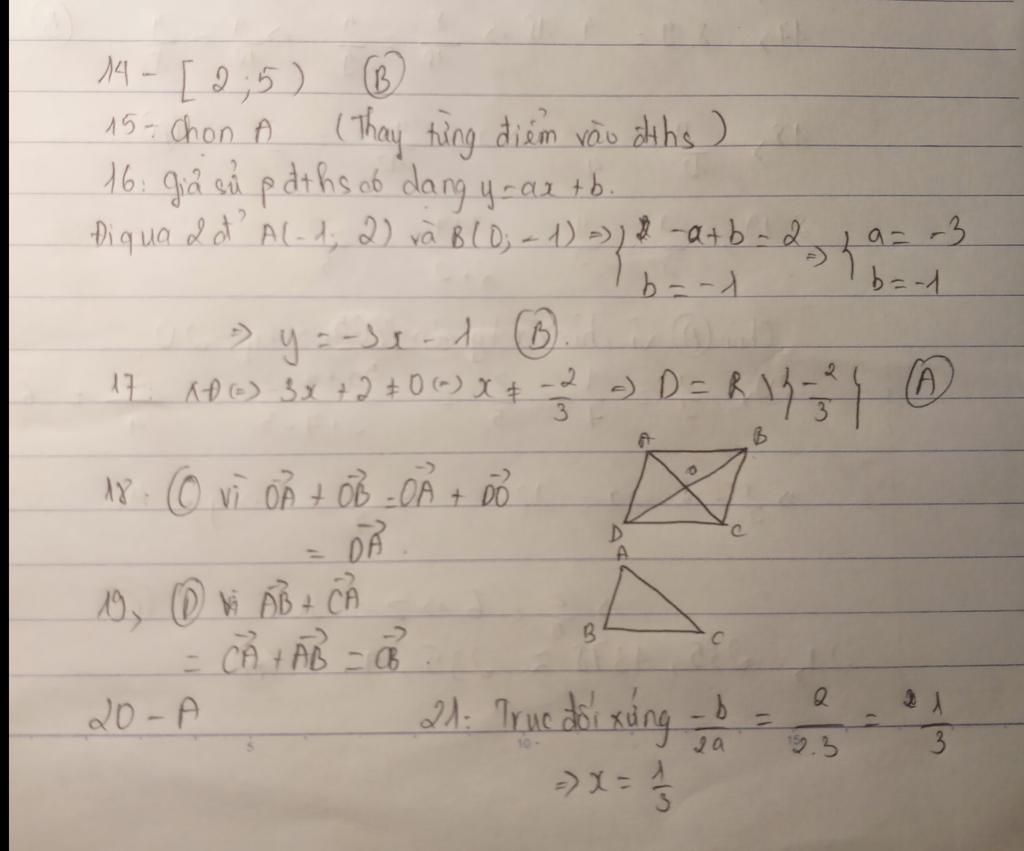 14 - [2;5) B
15 - Chọn A (Thay từng điểm vào đths)
16: giả sử p đths có dạng y=ax+b.
Đi qua 2 đ' A(-1; 2) và B(0; -1) => { -a+b=2 => { a = -3
b = -1 b = -1
=> y = -3x - 1 B.
17: XĐ (=) 3x + 2 ≠ 0 (=) x ≠ -2/3 => D = R \ {-2/3} A
18: C vì OA→ + OB→ = OA→ + DO→
= DA→.
A B
O
D C
19, D vì AB→ + CA→
= CA→ + AB→ = CB→.
A
B C
20 - A
21: Trục đối xứng -b/2a = 2/2.3 = 1/3
=> x = 1/3